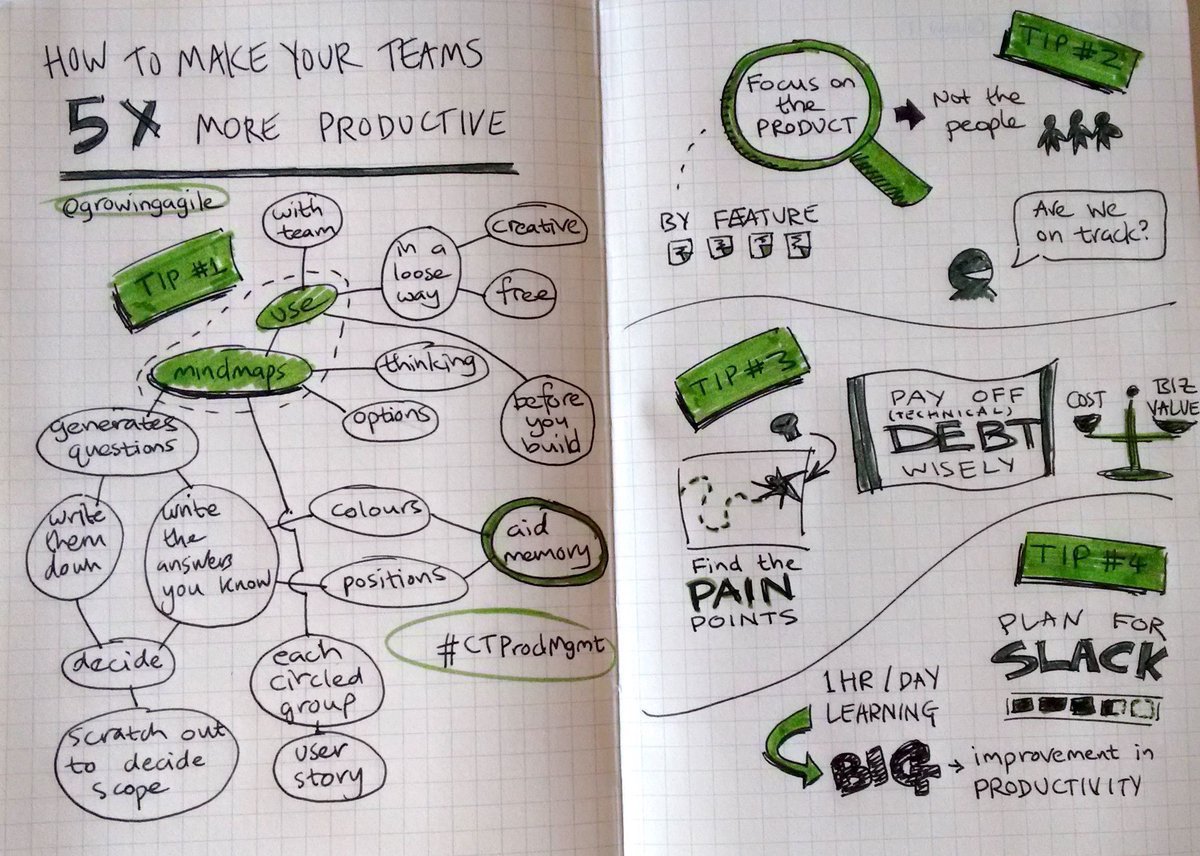 HOW TO MAKE YOUR TEAMS
5X MORE PRODUCTIVE
@growingagile
TIP #1
with
team
use
in a
loose
way
creative
free
mindmaps
thinking
options
before
you
build
generates
questions
write
them
down
write
the
answers
you know
colours
positions
aid
memory
decide
scratch out
to decide
scope
each
circled
group
user
story
#CTProdMgmt
TIP #2
Focus on
the
PRODUCT
Not the
people
BY FEATURE
Are we
on track?
TIP #3
PAY OFF
(TECHNICAL)
DEBT
WISELY
COST
BIZ
VALUE
Find the
PAIN
POINTS
TIP #4
PLAN FOR
SLACK
1HR/DAY
LEARNING
BIG
improvement in
PRODUCTIVITY